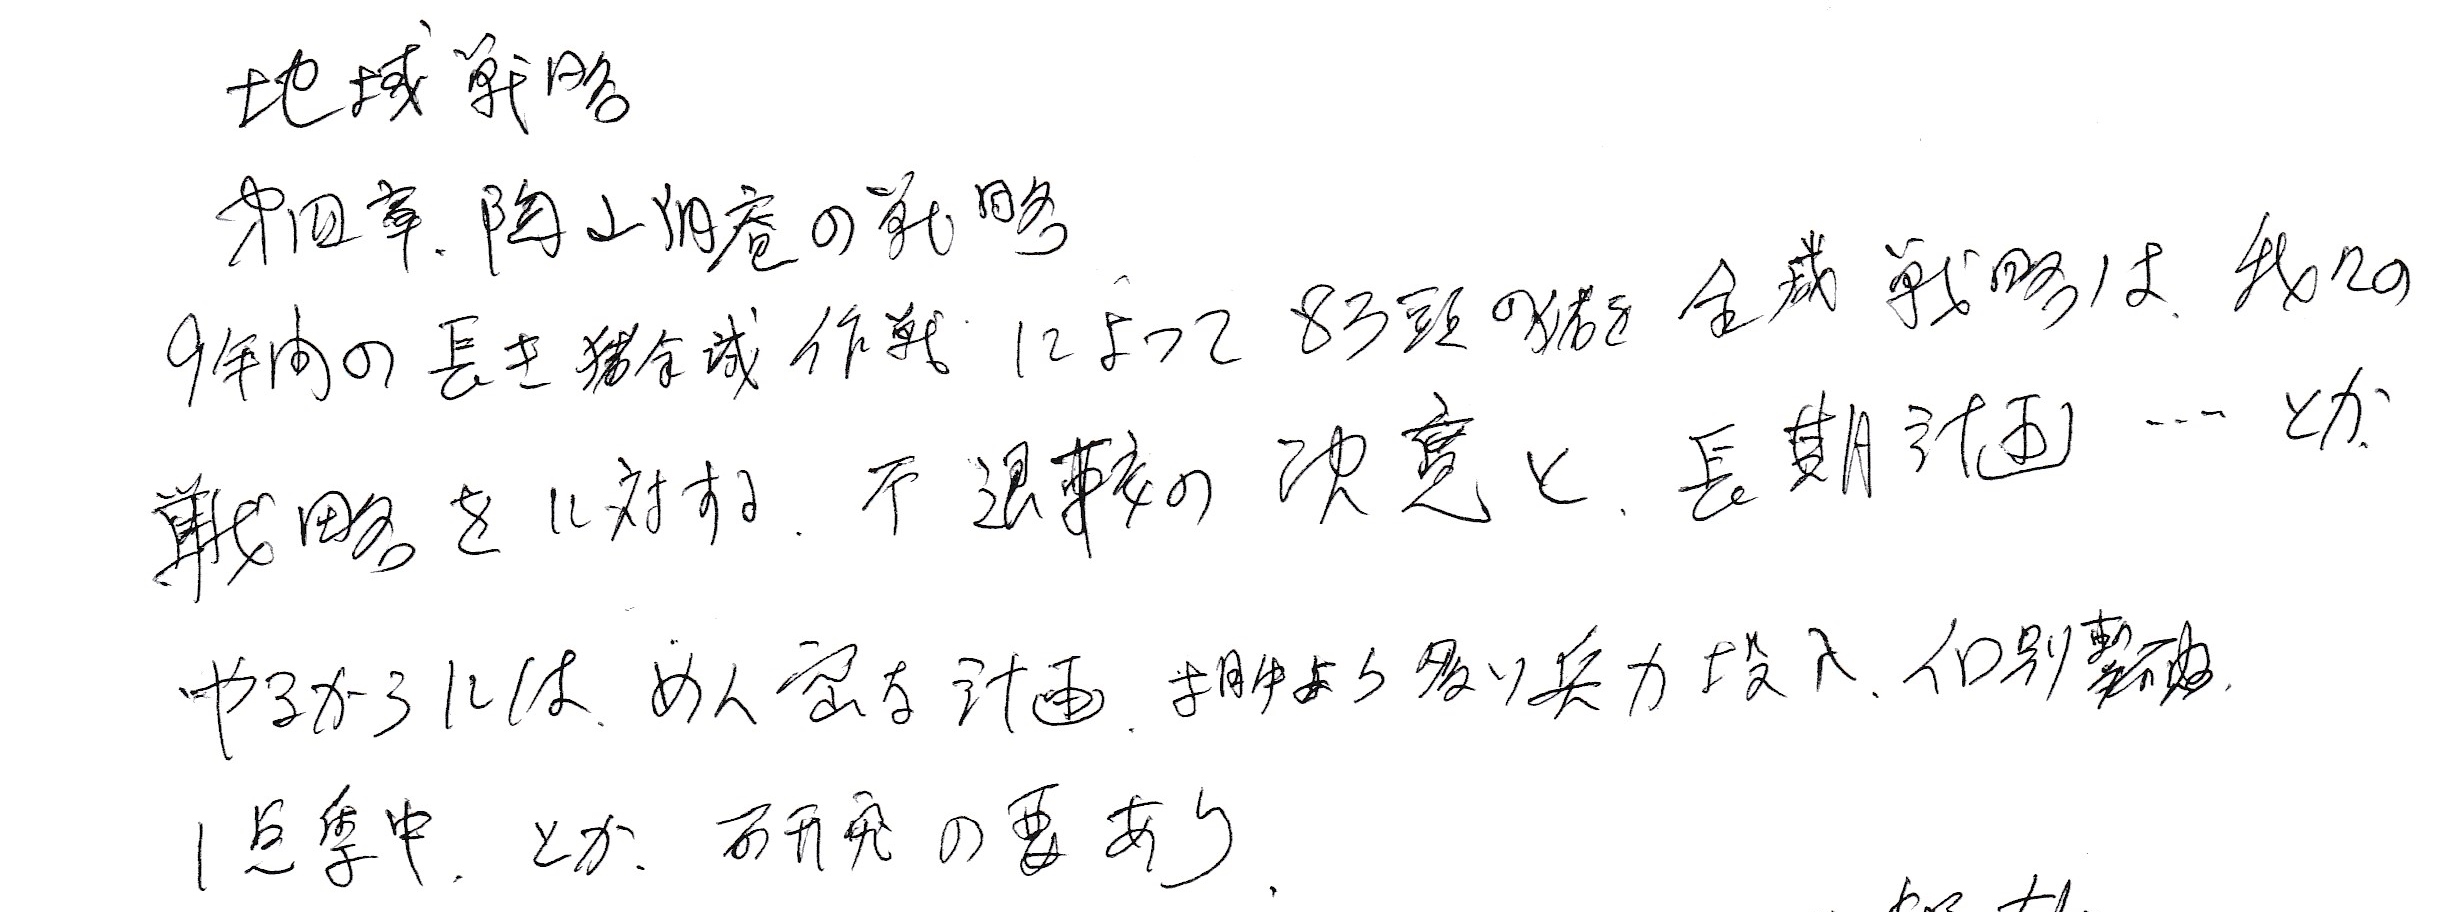 地域戦略
第四章、陶山訥庵の戦略
9年間の長き猪全滅作戦によって83頭の猪を全滅戦略は、我々の
戦略をに対する、不退転の決意と、長期計画…とか、
やるからには、めん密な計画、より多い兵力投入、個別撃破、
1点集中、とか、研究の要あり、